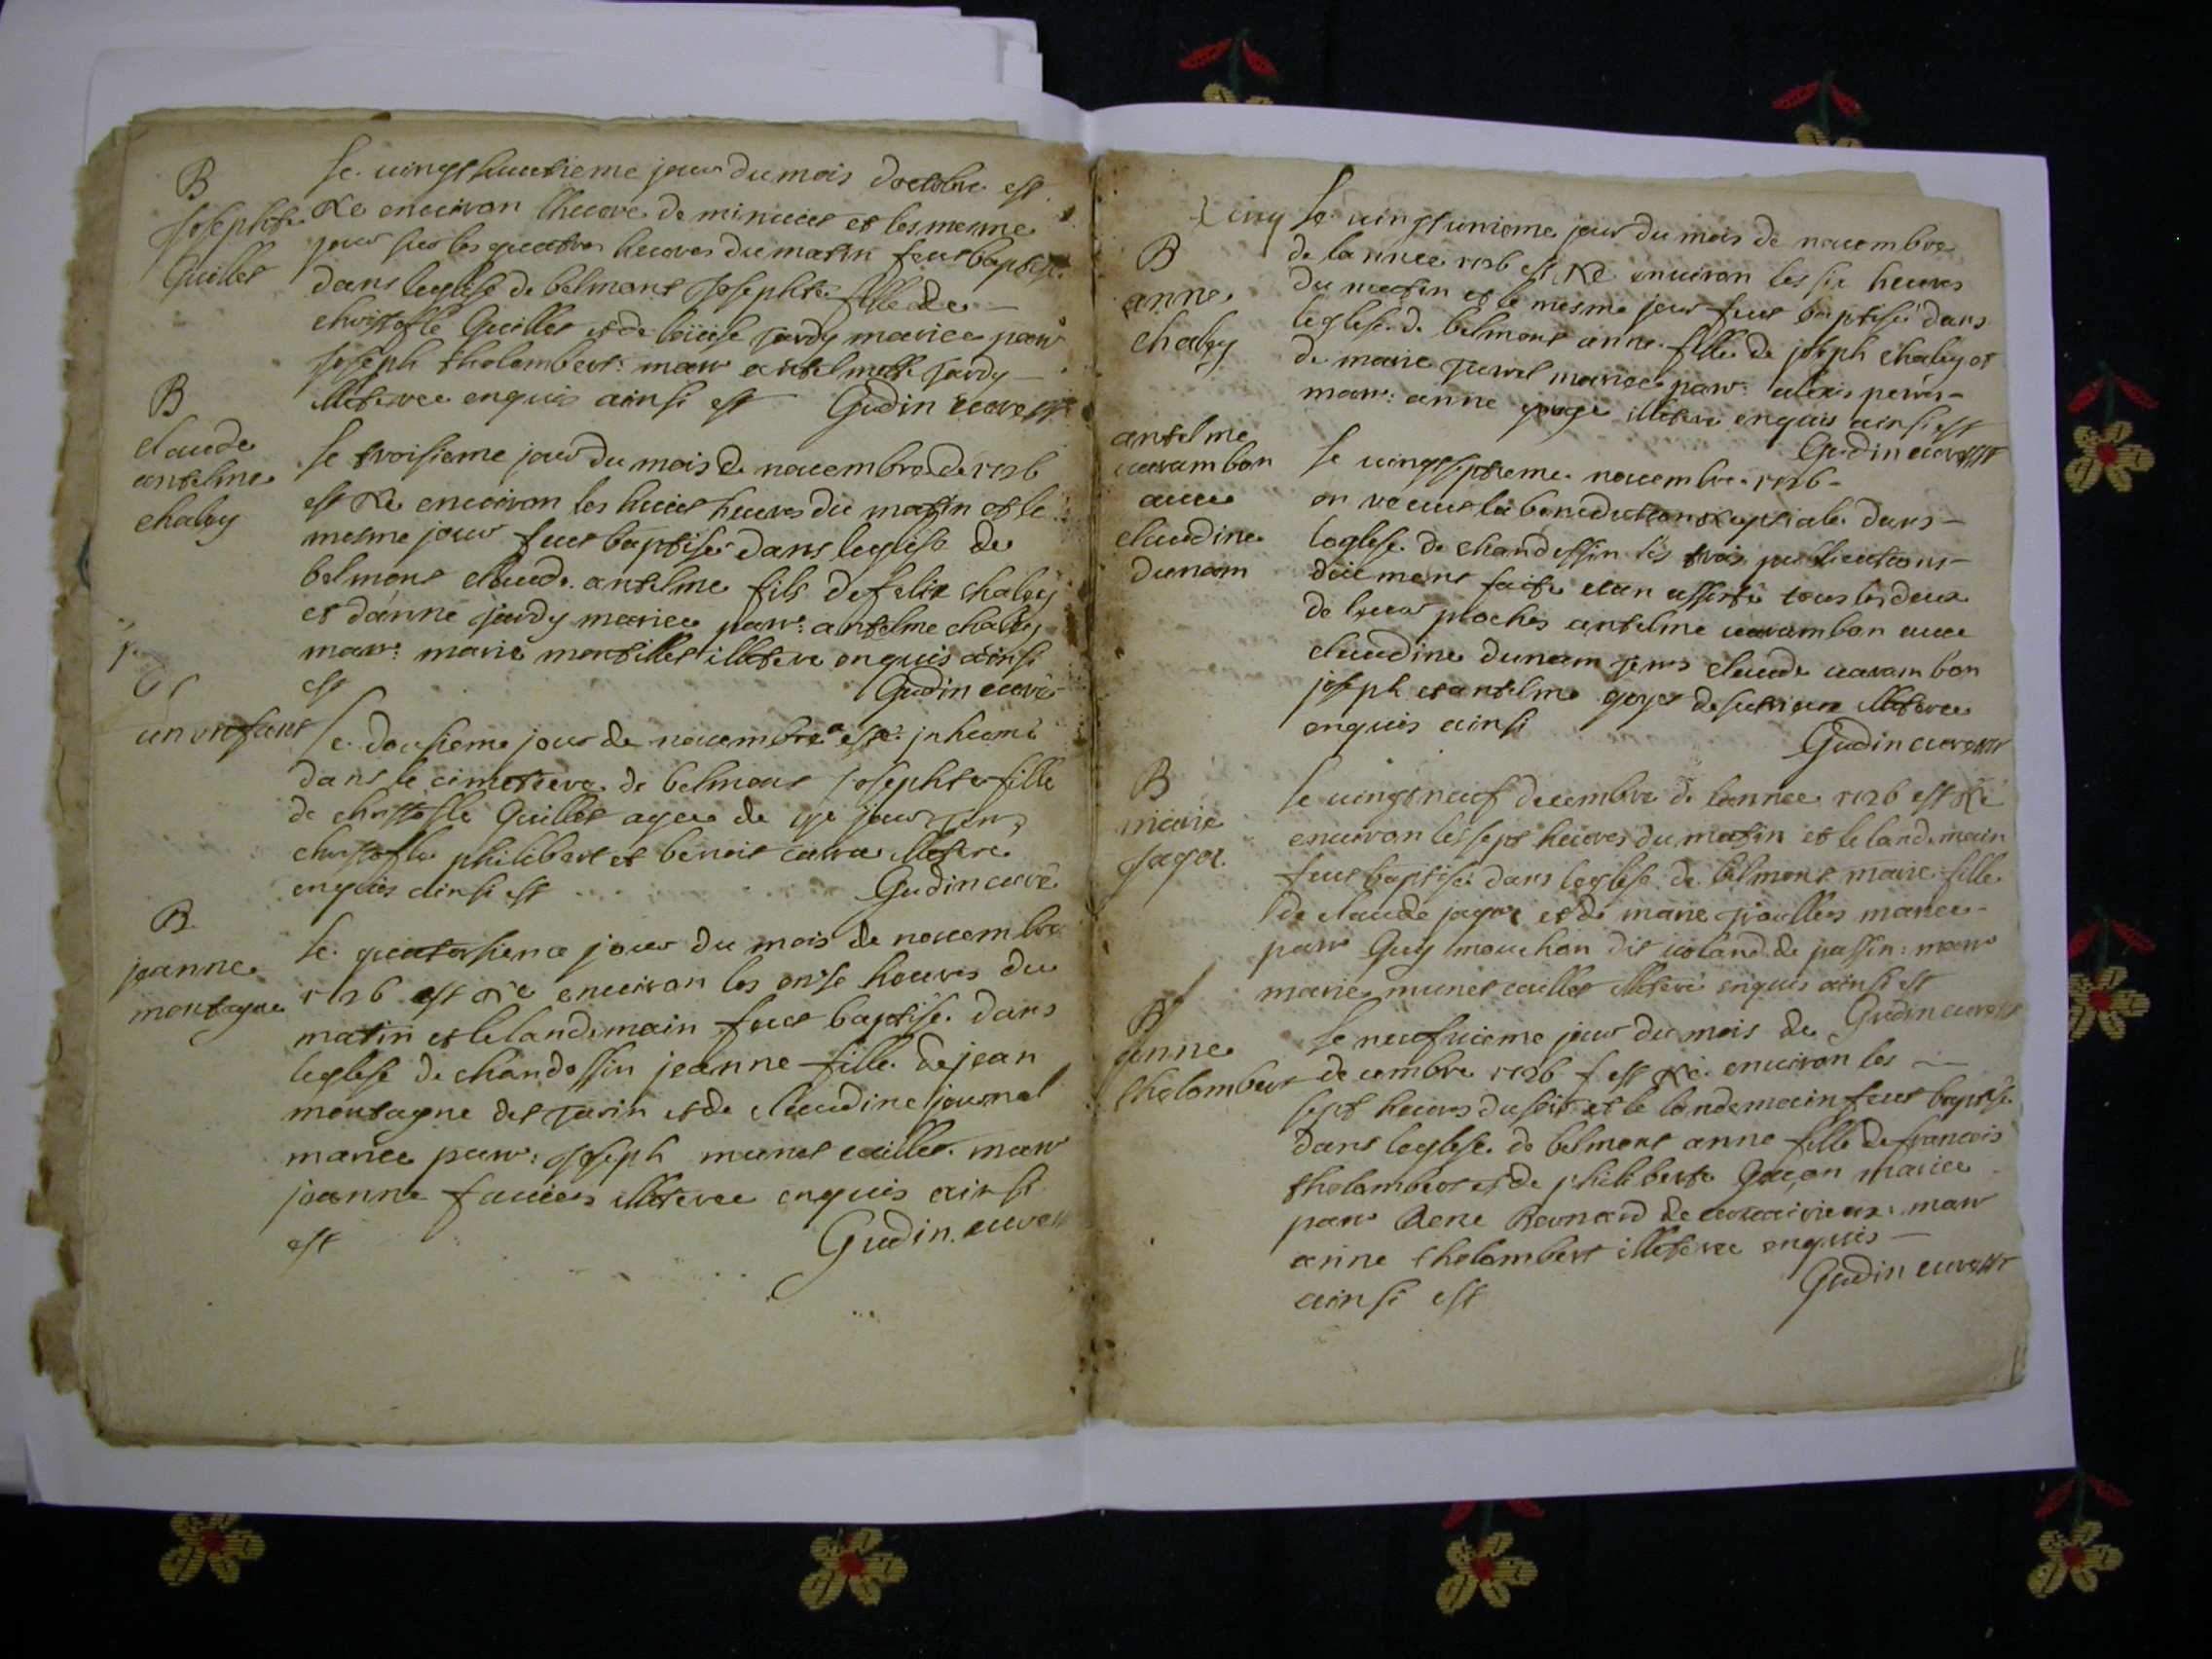 B
Josephte
Guillet
le vingt huictieme jour du mois doctobre est
né enuiron lheure de minuict et les mesme
jour sur les quatre heures du matin feut baptisé
dans leglise de belmont Josephte fille de
christofle Guillet et de loüise jardy mariee parr
Joseph tholombert: marr antelmette jardy
illiteree enquis ainsi est Gudin curé
B
claude
antelme
chaley
le troisieme jour du mois de nouembre de 1726
est né enuiron les huict heures du matin et le
mesme jour feut baptisé dans leglise de
belmont claude antelme fils de felix chaley
et danne jardy mariee parr: antelme chaley
marr: marie montillet illiteré enquis ainsi
est Gudin curé
un enfant
le dousieme jour de nouembre a esté inhumé
dans le cimetiere de belmont Josephte fille
de christofle Guillet agee de jour
christofle philibert et benoit illiteré
enquis ainsi est Gudin curé
B
jeanne
montagne
le quatorsieme jour du mois de nouembre
1726 est né enuiron les onse heures du
matin et le landemain feut baptisé dans
leglise de chandossin jeanne fille de jean
montagne det et de claudine journel
mariee parr: Joseph munet caillet marr
jeanne illiteree enquis ainsi
est Gudin curé
B
anne
chaley
le vingt unieme jour du mois de nouembre
de lannee 1726 est né enuiron les six heures
du matin et le mesme jour feut baptisé dans
leglise de belmont anne fille de joseph chaley et
de marie mariee parr: alexis
marr: anne illiteré enquis ainsi est
Gudin curé
antelme
uarambon
auec
claudine
dunam
le vingt septieme nouembre 1726
on receut la benediction nuptiale dans
leglise de chandossin les trois publications
düement faite etan assisté tous les deux
de leur proches antelme uarambon auec
claudine dunam claude uarambon
joseph et antelme goyet de illiteree
enquis ainsi
Gudin curé
B
marie
jagot
le vingt neuf decembre de lannee 1726 est né
enuiron les sept heures du matin et le landemain
feut baptisé dans leglise de belmont marie fille
de claude et de marie mariee
parr Guy mouchon dit de passin: marr
marie munet caillet illiteré enquis ainsi est
Gudin curé
B
anne
tholombert
le neufuieme jour du mois de
decembre 1726 est né enuiron les
sept heures du soir et le landemain feut baptisé
dans leglise de belmont anne fille de francois
tholombert et de philiberte mariee
parr Rene Bernard de marr
anne tholombert illiteree enquis
ainsi est
Gudin curé